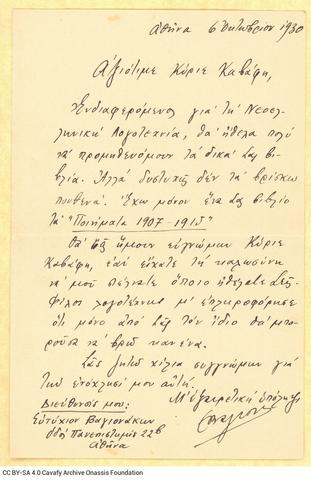 Ἀθήνα 6 Ὀκτωβρίου 1930
Ἀξιότιμε Κύριε Καβάφη,
Ἐνδιαφερόμενος γιὰ τὴ Νεοελ-
ληνικὴ Λογοτεχνία, θὰ ἤθελα πολὺ
νὰ προμηθευόμουν τὰ δικά σας βι-
βλία. Ἀλλὰ δυστυχῶς δὲν τὰ βρίσκω
πουθενά. Ἔχω μόνον ἕνα σας βιβλίο
τὰ "Ποιήματα 1907-1915"
Θὰ σᾶς ἤμουν εὐγνώμων Κύριε
Καβάφη, ἐὰν εἴχατε τὴ καλωσύνη
νὰ μοῦ στέλνατε ὅποιο ἠθέλατε.
Φίλος λογοτέχνης μ' ἐπληροφόρησε
ὅτι μόνο ἀπὸ σᾶς τὸν ἴδιο θὰ μπο-
ροῦσα νὰ βρῶ κανένα.
Σᾶς ζητῶ χίλια συγγνώμων γιὰ
τὴν ἐνόχλησί μου αὐτή.
Μ' ἐξαιρετικὴ ὑπόληψι
Διεύθυνσίς μου:
Εὐτύχιον Βαγιονάκην
ὁδὸς Πανεπιστημίου 22β
Ἀθήνα
CC BY-SA 4.0 Cavafy Archive Onassis Foundation